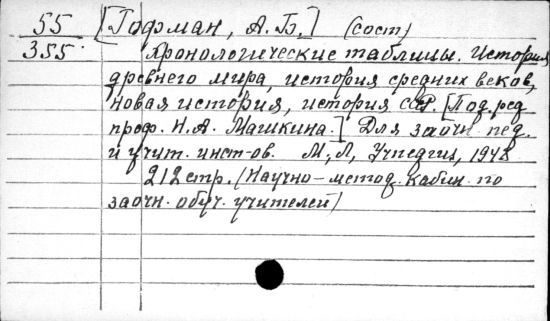 55 [Гофман, А. Б.] (сост)
355. Хронологические таблицы. История
древнего мира, история средних веков,
новая история, история СССР. [Под ред
проф. Н. А. Машкина.] Для заочн. пед.
и учит. инст-ов. М., Л., Учпедгиз, 1948
212 стр. (Научно-метод. кабин. по
заочн. обуч. учителей)